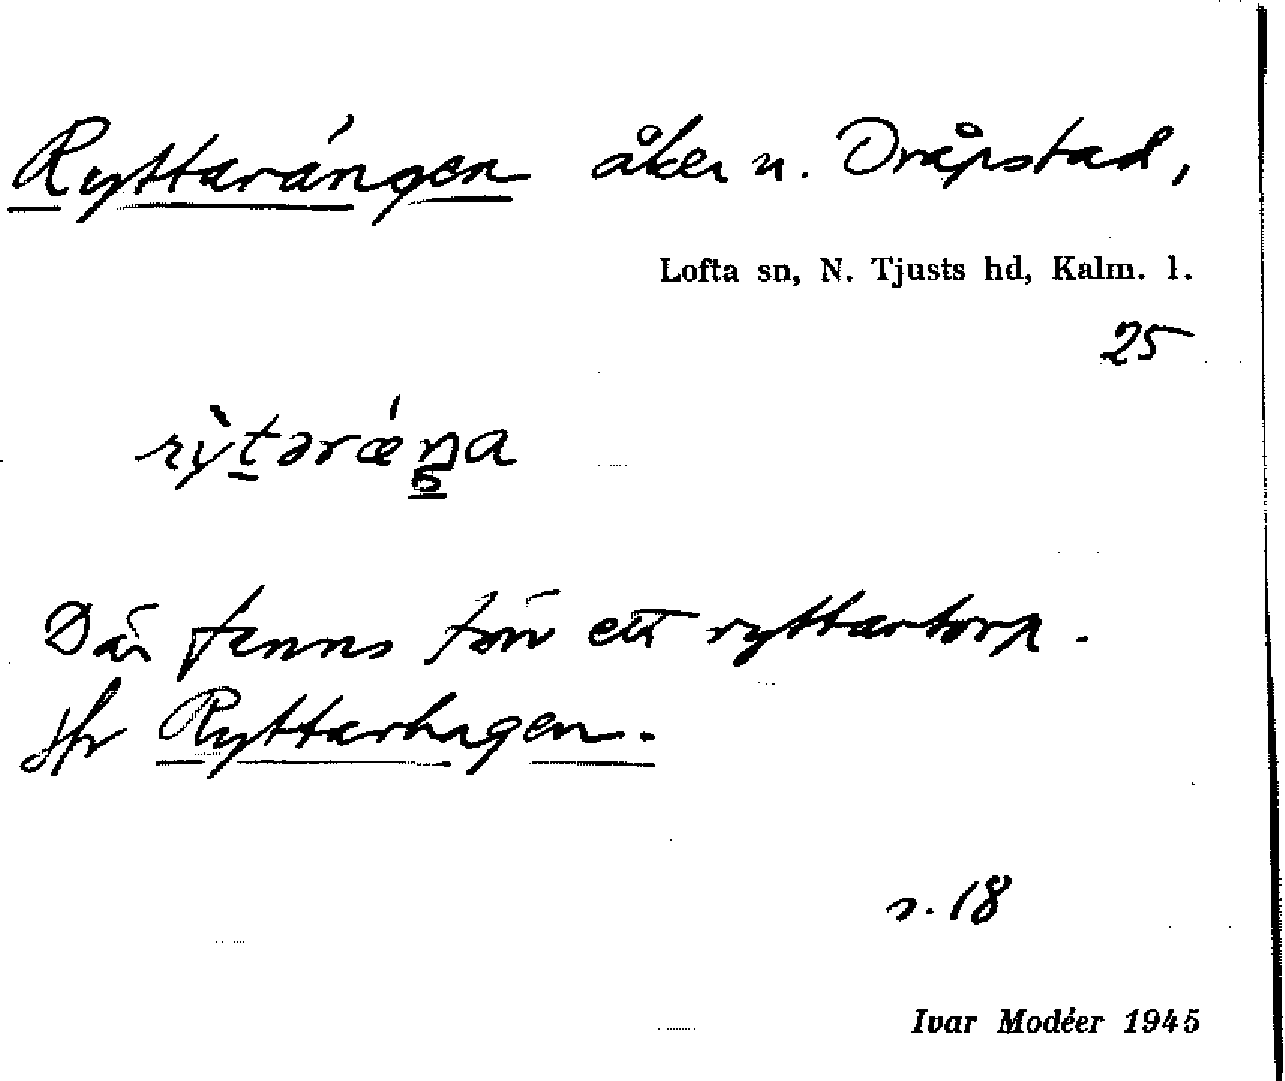 Ryttarängen åker n. Dråpstad,
Lofta sn, N. Tjusts hd, Kalm. l.
25
Där fanns förr ett ryttartorp.
Jfr Ryttarhagen.
s. 18
Ivar Modéer 1945